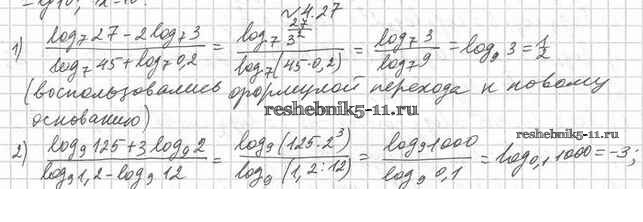 №4.27
1) (log₇27 - 2log₇3)/(log₇45 + log₇0,2) = (log₇ 27/3²)/(log₇(45·0,2)) = (log₇3)/(log₇9) = log₉3 = 1/2
(воспользовались формулой перехода к новому
reshebnik5-11.ru
основанию)
reshebnik5-11.ru
2) (log₉125 + 3log₉2)/(log₉1,2 - log₉12) = (log₉(125·2³))/(log₉(1,2:12)) = (log₉1000)/(log₉0,1) = log₀,₁1000 = -3;